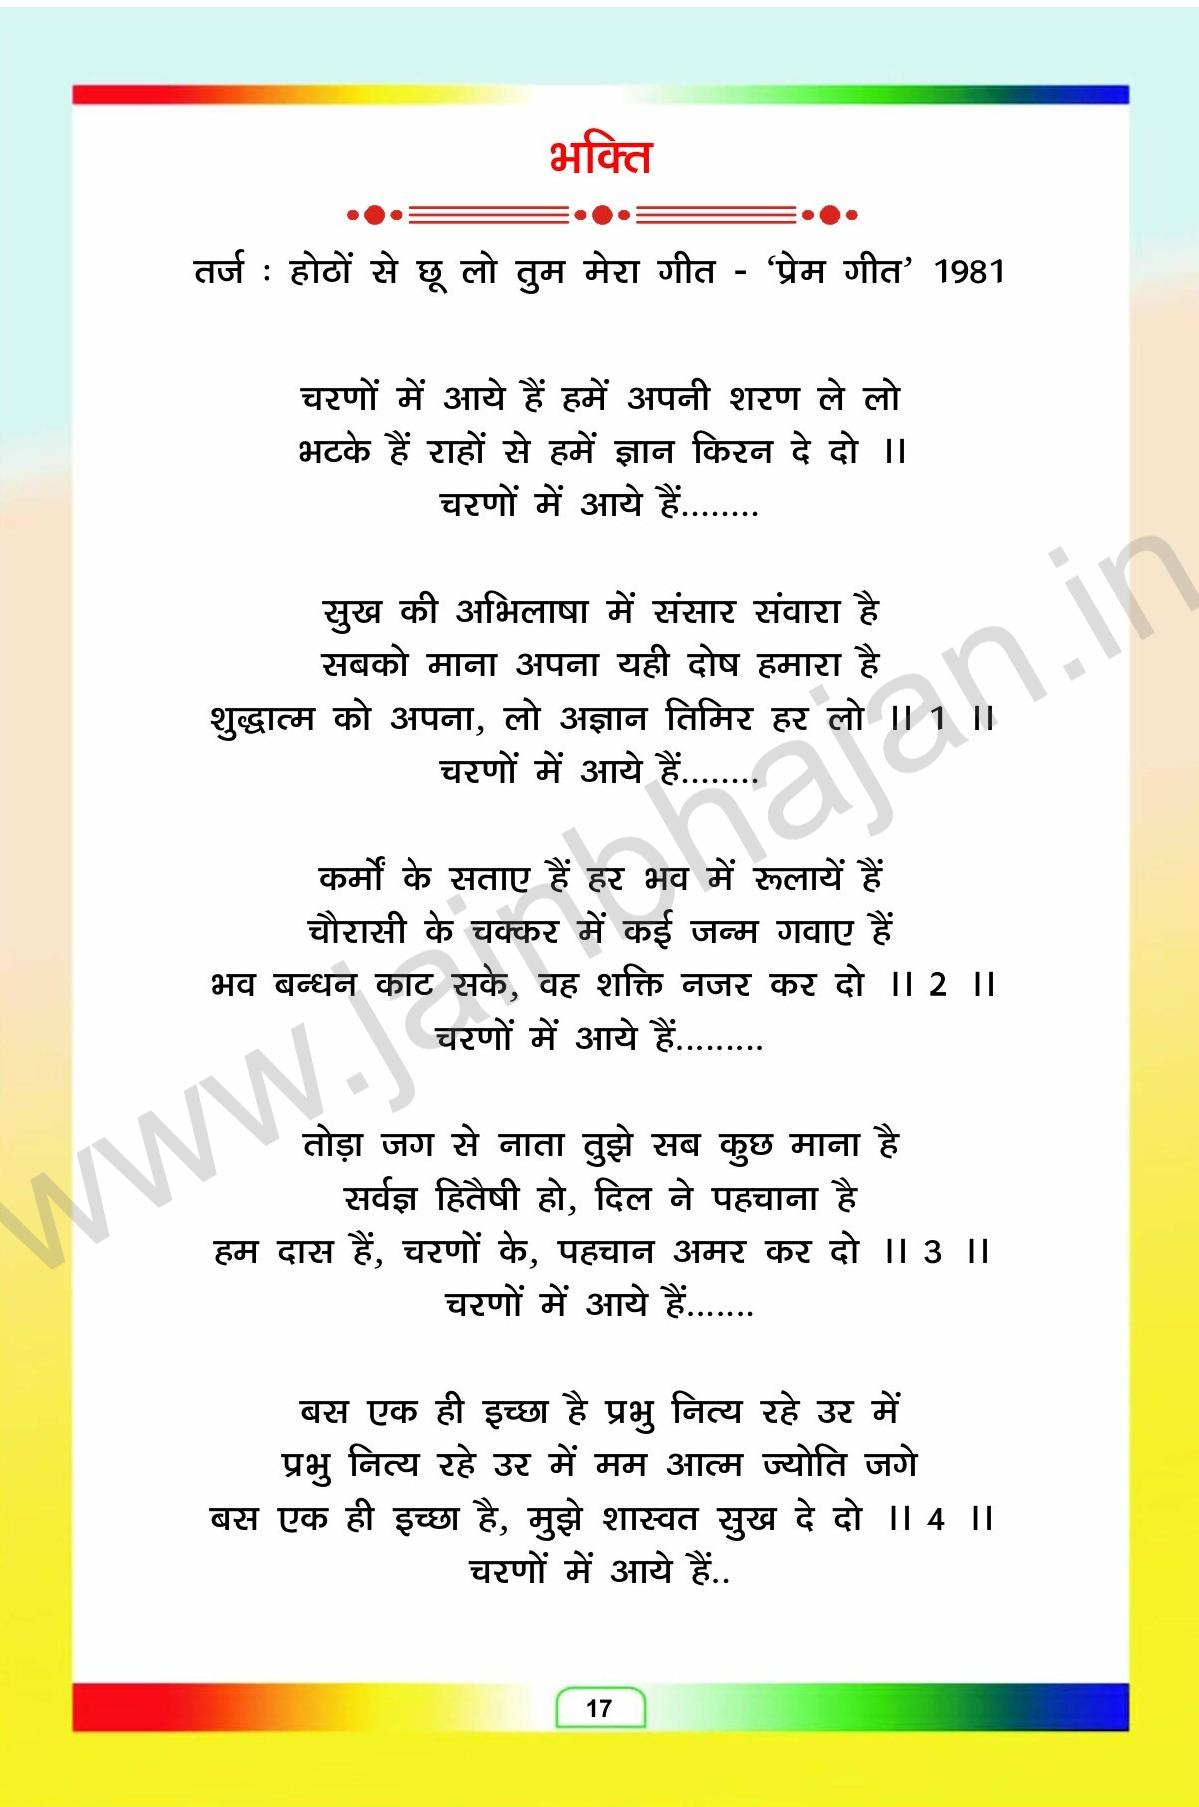 भक्ति
तर्ज : होठों से छू लो तुम मेरा गीत - ‘प्रेम गीत’ 1981
चरणों में आये हैं हमें अपनी शरण ले लो
भटके हैं राहों से हमें ज्ञान किरन दे दो ।।
चरणों में आये हैं........
सुख की अभिलाषा में संसार संवारा है
सबको माना अपना यही दोष हमारा है
शुद्धात्म को अपना, लो अज्ञान तिमिर हर लो ।। 1 ।।
चरणों में आये हैं........
कर्मों के सताए हैं हर भव में रूलायें हैं
चौरासी के चक्कर में कई जन्म गवाए हैं
भव बन्धन काट सके, वह शक्ति नजर कर दो ।। 2 ।।
चरणों में आये हैं.........
तोड़ा जग से नाता तुझे सब कुछ माना है
सर्वज्ञ हितैषी हो, दिल ने पहचाना है
हम दास हैं, चरणों के, पहचान अमर कर दो ।। 3 ।।
चरणों में आये हैं.......
बस एक ही इच्छा है प्रभु नित्य रहे उर में
प्रभु नित्य रहे उर में मम आत्म ज्योति जगे
बस एक ही इच्छा है, मुझे शास्वत सुख दे दो ।। 4 ।।
चरणों में आये हैं..
17
www.jainbhajan.in